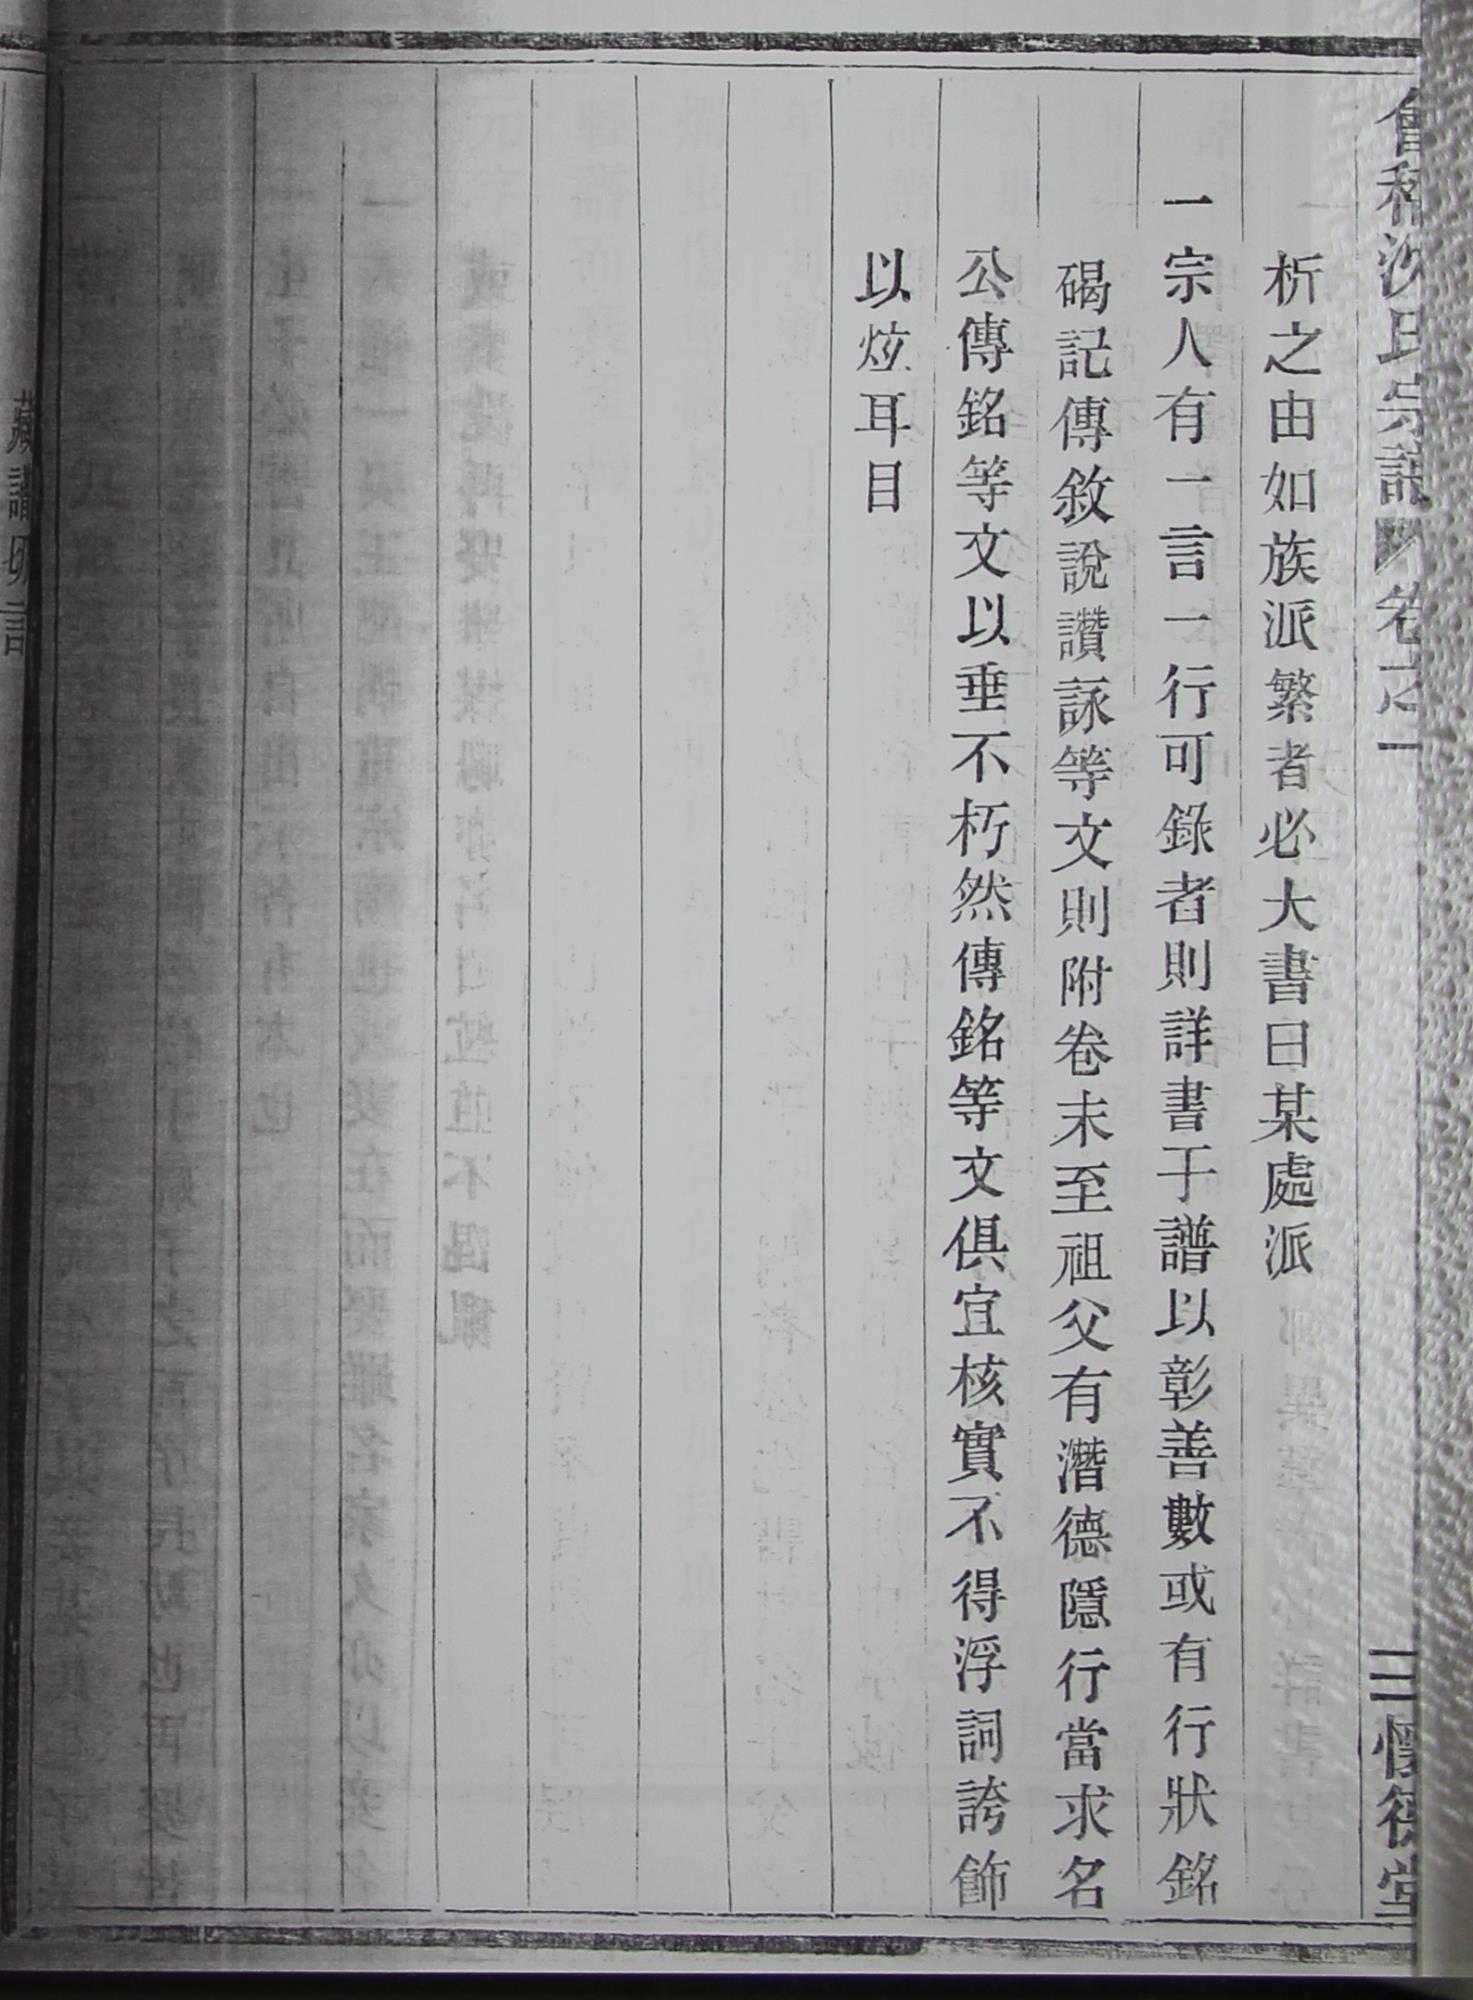 會稽沙氏宗譜 卷之一 三 懷德堂
析之由如族派繁者必大書曰某處派
一宗人有一言一行可錄者則詳書于譜以彰善數或有行狀銘
碣記傳敘說讚詠等文則附卷末至祖父有潛德隱行當求名
公傳銘等文以垂不朽然傳銘等文俱宜核實不得浮詞誇飾
以炫耳目
藏譜